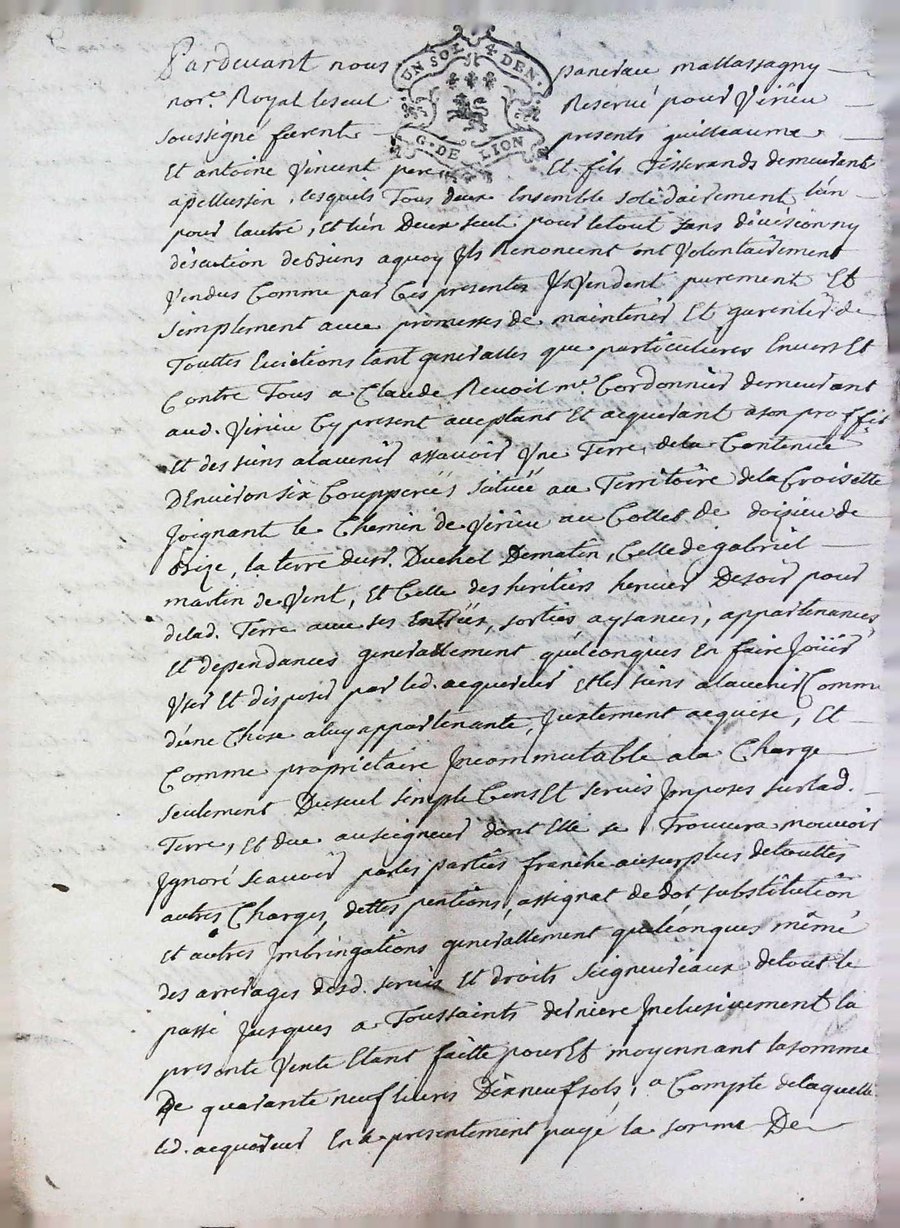 UN SOL 4 DEN.
G. DE LION
Pardevant nous pancrau mallassagny
nore. Royal le seul Reservé pour Virieu
soussigné furent presents guilleaume
Et antoine Vincent pere Et fils Tisserands demeurants
apellussin, lesquels Tous deux Ensemble solidairement l'un
pour lautre, et lún Deux seul pour le tout sans division ny
discution de biens a quoy Ils Renoncent ont Volontairement
Vendus Comme par Ces presentes Ils Vendent purement Et
simplement avec promesses de maintenir Et garentir de
Touttes Evictions tant generalles que particulieres Envers Et
Contre Tous a Claude Revoil me. Cordonnier demeurant
aud. Virieu Cy present acceptant Et acquerant a son proffit
Et des siens alavenir assavoir Une Terre de la Contenue
D'Environ six Coupperées, située au Territoire de la Croisette
Joignant le Chemin de Virieu au Collet de doizieu de
bize, la terre du sr. Duchel De matin, Celle de gabriel
martin de Vent, Et Celle des heritiers De soir pour
de lad. Terre avec ses Entrées, sorties aysances, appartenances
Et dependances generallement quélconques En faire Joüir
Vser Et disposer par led. acquereur Et les siens alavenir Comme
d'une Chose aluy appartenante, Justement acquise, Et
Comme proprietaire Jncommutable a la Charge
seulement Du seul simple Cens Et servis Jmposés sur lad.
Terre, Et due au seigneur dont Elle se Trouvera mouvoir
Ignoré scavoir par les parties franche au surplus de touttes
autres Charges, dettes pentions, assignat de dot substitution
Et autres Jmbringations generallement quélconques même
des arrerages desd. servis Et droits seigneuriaux de tout le
passé Jusques a Toussaints derniere Inclusivement la
presente Vente Etant faitte pour Et moyennant la somme
De quarante neuf livres Dix neuf sols, a Compte de laquelle
led. acquereur En a presentement payé la somme De